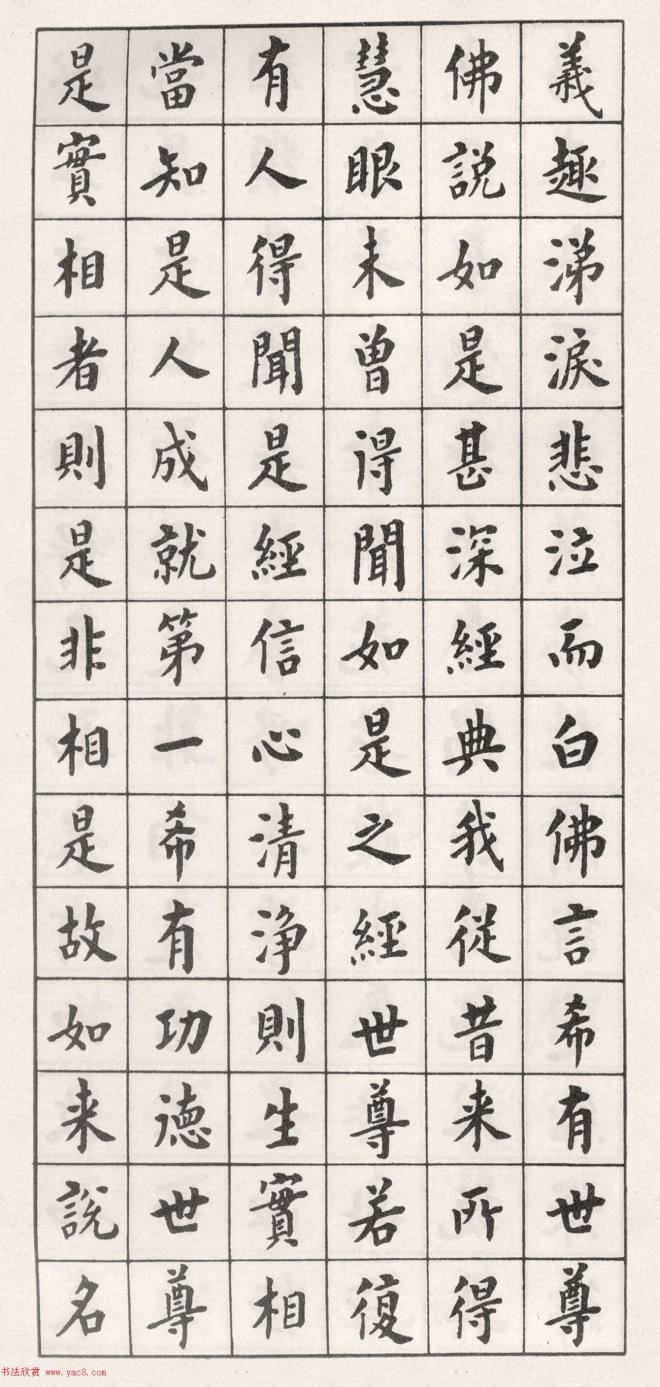 義趣涕淚悲泣而白佛言希有世尊
佛說如是甚深經典我從昔来所得
慧眼未曾得聞如是之經世尊若復
有人得聞是經信心清淨則生實相
當知是人成就第一希有功德世尊
是實相者則是非相是故如来說名
书法欣赏 www.yac8.com